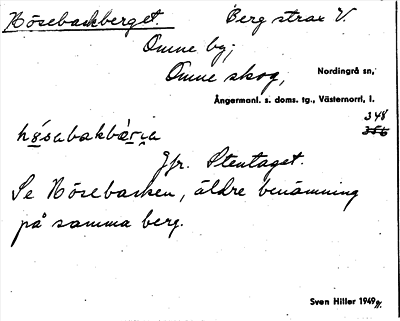 Hösebackberget. Berg strax V.
Omne by;
Omne skog, Nordingrå sn,
Ångermanl. s. doms. tg., Västernorrl, l.
348
356
hö́sabakbæ̀rjɐ
Jfr. Stentaget.
Se Hösebacken, äldre benämning
på samma berg.
Sven Hiller 1949